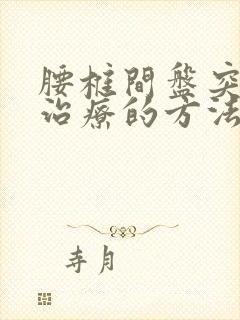 腰椎間盤突
治療的方法
寺月